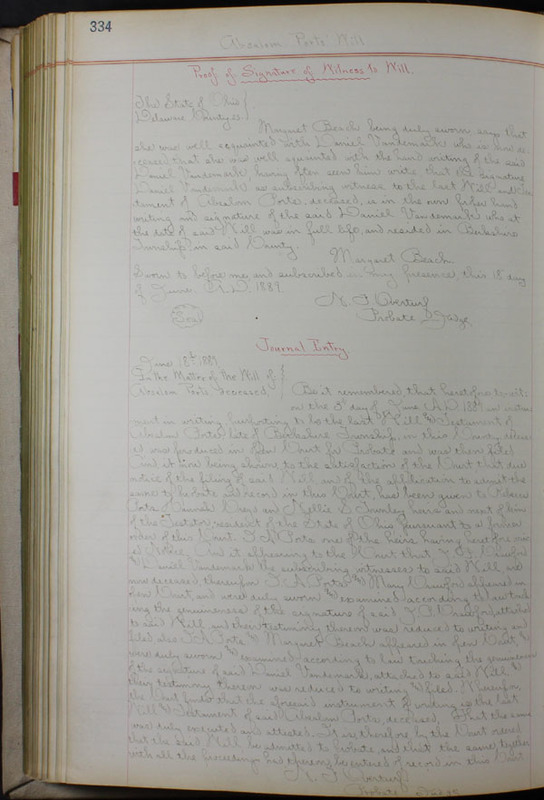 334
Absalom Ports Will
Proof of Signature of Witness to Will.
The State of Ohio
Delaware County ss
Margaret Beach being duly sworn says that
she was well acquainted with Daniel Vandemark who is now de-
ceased, that she was well acquainted with the hand writing of the said
Daniel Vandemark, having often seen him write, that the signature
Daniel Vandemark as subscribing witness to the last Will and Tes-
tament of Absalom Ports, deceased, is in the own proper hand
writing and signature of the said Daniel Vandemark who at
the date of said Will was in full life, and resided in Berkshire
Township in said County.
Margaret Beach.
Sworn to before me and subscribed in my presence, this 18 day
of June, A.D. 1889.
Probate Judge
Seal
Journal Entry
June 18th 1889
In the Matter of the Will of
Absalom Ports, deceased.
Be it remembered that heretofore to-wit:
on the 3d day of June A.D. 1889 an instru-
ment in writing, purporting to be the last Will and Testament of
Absalom Ports, late of Berkshire Township, in this County, deceas-
ed, was produced in open Court for Probate and was then filed
And it now being shown to the satisfaction of the Court that due
notice of the filing of said Will and of the application to admit the
same to probate and record in this Court, has been given to
Ports, Hannah and Nellie S. heirs and next of kin
of the Testator, resident of the State of Ohio pursuant to a former
order of this Court. Ports one of the heirs having heretofore
And it appearing to the Court that Crawford
& Daniel Vandemark the subscribing witnesses to said Will, are
now deceased, thereupon Ports & Mary Crawford appeared in
open Court, and were duly sworn & examined according to law touch-
ing the genuineness of the signature of said Crawford, attached
to said Will and their testimony thereon was reduced to writing and
filed also Ports & Margaret Beach appeared in open Court, &
were duly sworn & examined according to law touching the genuineness
of the signature of said Daniel Vandemark, attached to said Will &
their testimony thereon was reduced to writing & filed. Whereupon
the Court finds that the aforesaid instrument of writing is the last
Will & Testament of said Absalom Ports, deceased, That the same
was duly executed and attested. It is therefore by the Court ordered
that the said Will be admitted to probate and that the same together
with all the proceedings had thereon, be entered of record in this Court
Probate Judge